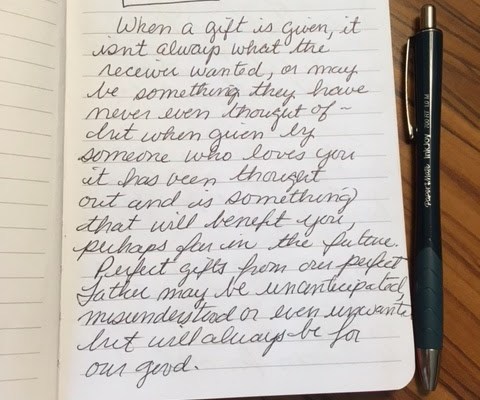 When a gift is given, it
isn't always what the
receiver wanted, or may
be something they have
never even thought of ~
but when given by
someone who loves you
it has been thought
out and is something
that will benefit you,
perhaps far in the future.
Perfect gifts from our perfect
Father may be unanticipated,
misunderstood or even unwanted
but will always be for
our good.
paper mate InkJoy